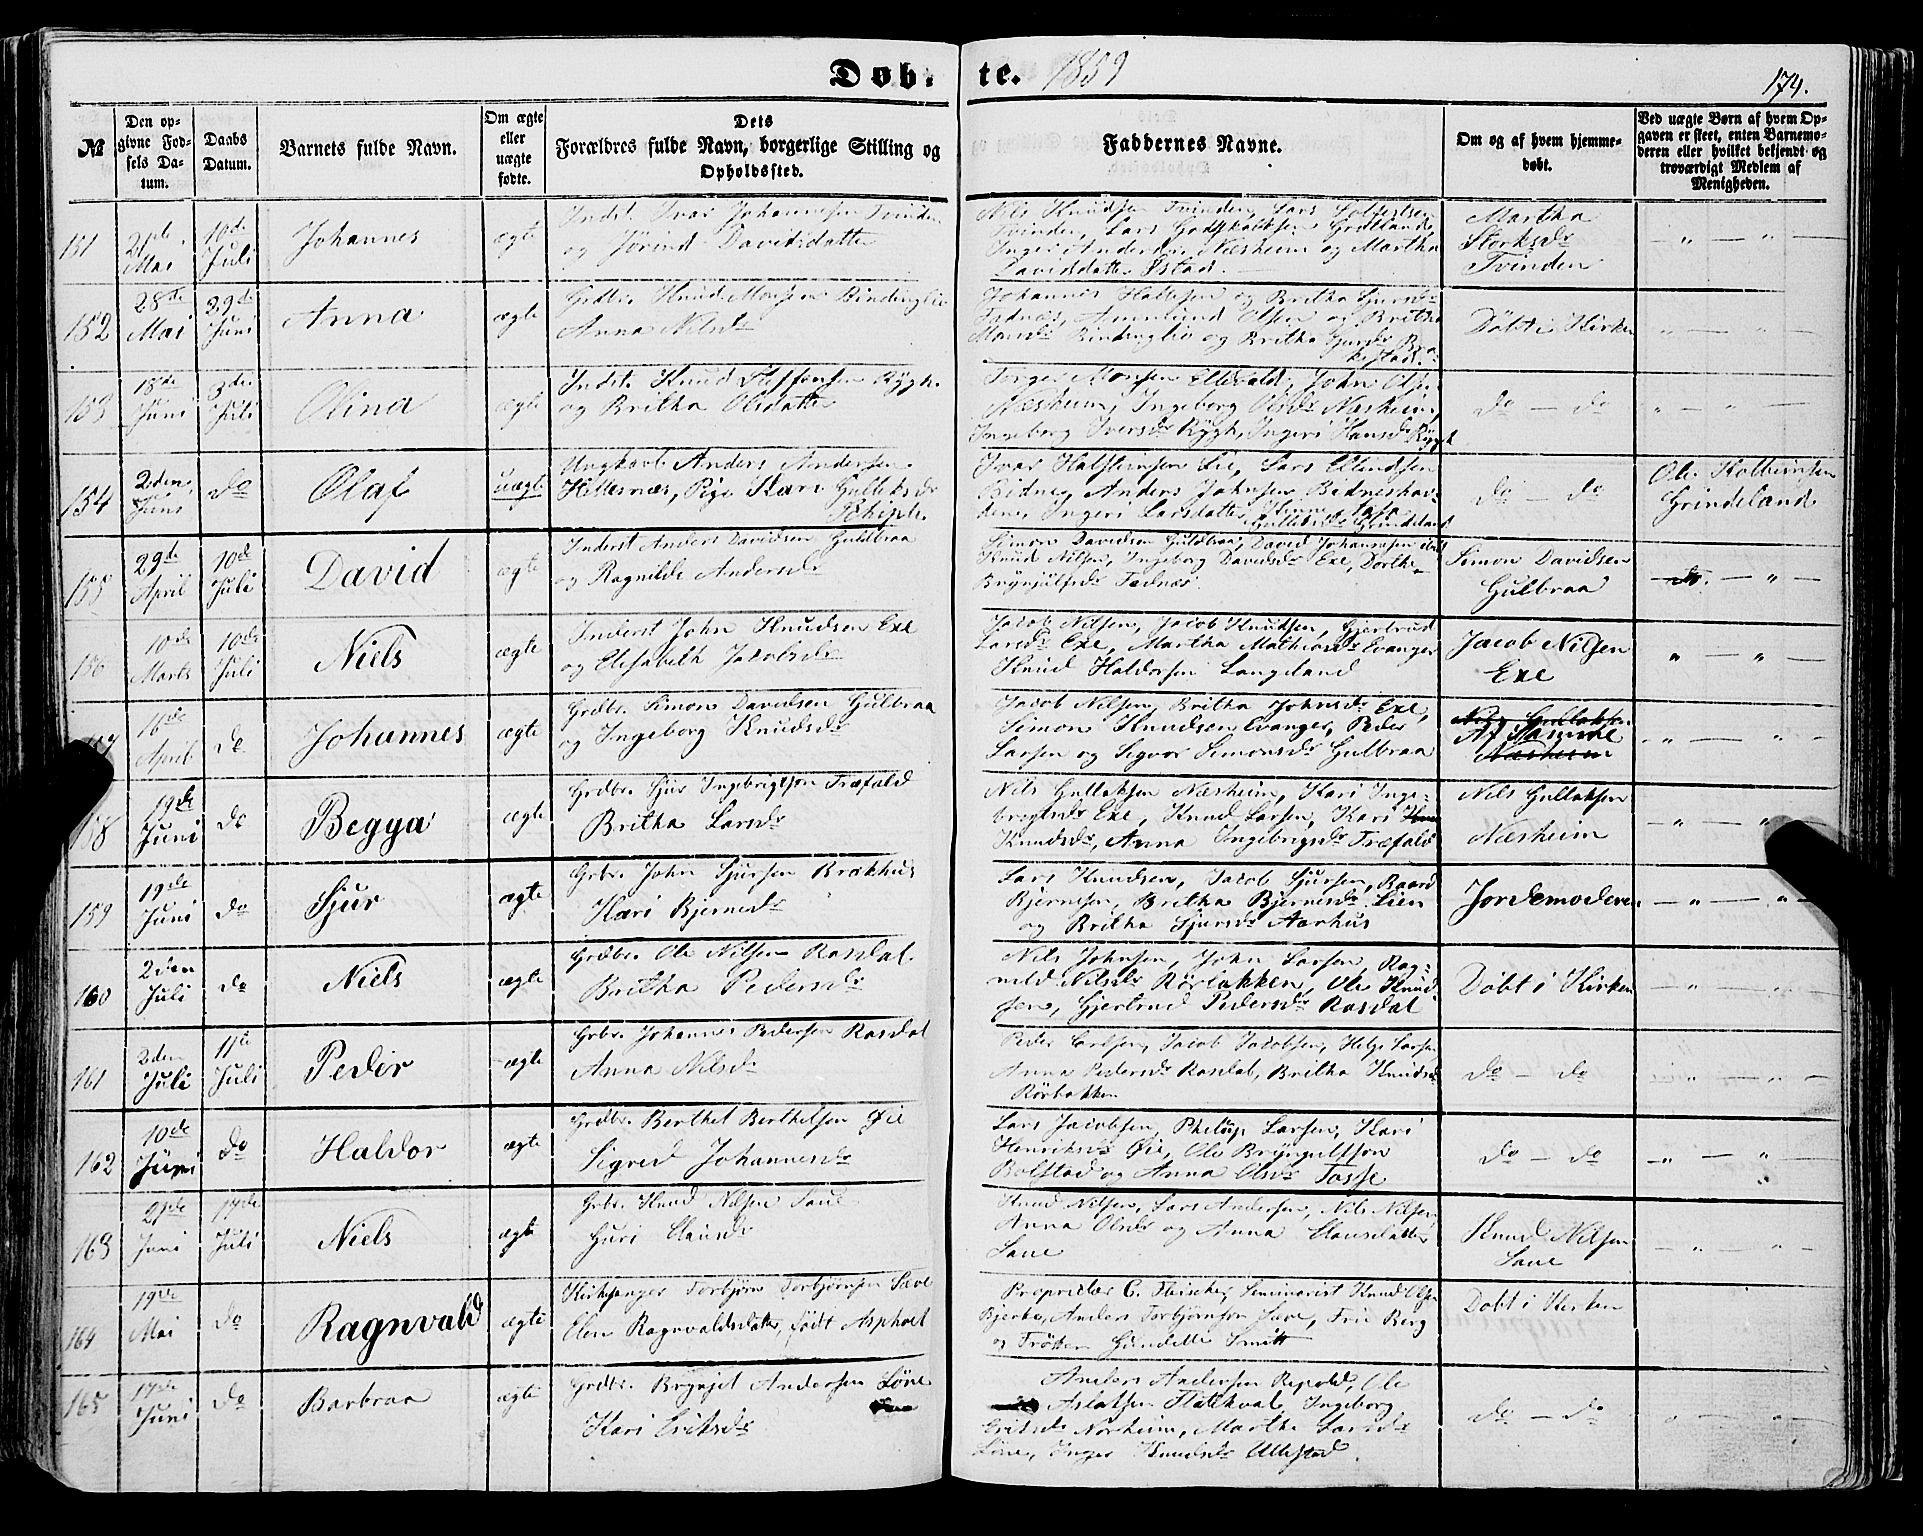 Døb-te. 1859
174.
№
Den opgivne Fødsels Datum.
Daabs Datum.
Barnets fulde Navn.
Om ægte eller uægte fødte.
Dets Forældres fulde Navn, borgerlige Stilling og Opholdssted.
Faddernes Navne.
Om og af hvem hjemmedøbt.
Ved uægte Børn af hvem Opgaven er skeet, enten Barnemoderen eller hvilket bekjendt og troværdigt Medlem af Menigheden.
151
21de Mai
10de Juli
Johannes
ægte
Indst. Ivar Johannesen Tvinden
og Jörind Davidsdatter
Nils Knudsen Tvinden, Lars
Tvinden, Lars
Inger Andersdr Næsheim og Martha
Davidsdatter
Martha
Tvinden
152
28de Mai
29de Juni
Anna
ægte
Grdbr. Knud Monsen Bindinglie
Anna Nilsdr
Johannes og Britha Sjursdr
Olsen og Britha
Monsdr Bindinglie og Britha Sjursdr
Døbt i Kirken
153
18de Juni
3die Juli
Olina
ægte
Indst. Knud Steffensen Rÿgh
og Britha Olsdatter
Torger Monsen John Ols.
Næsheim, Ingeborg Olsdr Næsheim,
Ingeborg Iversdr Rÿgh, Ingeri Hansdr Rÿgh
do — do
154
2den Juni
do
Olaf
uægte
Ungkarl Anders Andersen
Hellesnæs, Pige Kari Gulleksdr
Ivar Halsteinsen Lie, Lars
Bidne, Anders Johnsen,
Ingeri Larsdatter
Gulleksdr Grindeland
do — do
Ole
Grindeland
155
29de April
10de Juli
David
ægte
Inderst Anders Davidsen Guldbraa
og Ragnilde Andersdr
Simon Davidsen Guldbraa, David Johannesen ibid
Knud Nilsen, Ingeborg Davidsdr Exe, Dorthe
Brÿnjulfsdr
Simon Davidsen
Gulbraa
156
10de Marts
10de Juli
Niels
ægte
Inderst John Knudsen Exe
og Elisabeth Jacobsdr
Jacob Nilsen, Jacob Knudsen, Gjertrud
Larsdr Exe, Martha Mathiasdr Evanger
Knud Haldorsen Langeland
Jacob Nilsen
Exe
April
do
Johannes
ægte
Grdbr. Simon Davidsen Gulbraa
og Ingeborg Knudsdr
Jacob Nilsen, Britha Johnsdr Exe,
Simon Knudsen Evanger, Peder
Larsen og Sigvor Simonsdr Gulbraa
Nils Gullaksen
Af Samme
Næsheim
158
19de Juni
do
Begga
ægte
Grdbr. Sjur Ingebrigtsøn Træfald
Britha Larsdr
Nils Gullaksen Næsheim, Kari Inge-
brigtsdr Exe, Knud Larsen, Kari
Knudsdr, Anna Ingebrigsdr Træfald
Nils Gullaksen
Næsheim
159
19de Juni
do
Sjur
ægte
Grbr. John Sjursen Brækhus
Kari Bjernesdr
Lars Knudsen, Jacob Sjursen, Baard
Bjernesen, Britha Bjernesdr Lien
og Britha Sjursdr Aarhus
Jordemoderen
160
2den Juli
do
Niels
ægte
Grdbr. Ole Nilsen Rasdal.
Britha Pedersdr
Nils Johnsen, John Larsen, Rag-
nild Nilsdr Rörbakken, Ole Knud-
sen, Gjertrud Pedersdr Rasdal
Döbt i Kirken
161
2den Juli
11te Juli
Peder
ægte
Grbr. Johannes Pedersen Rasdal
Anna Nilsdr
Peder Larsen, Jacob Jacobsen, Helge Larsen
Anna Pedersdr Rasdal, Britha Knudsdr
Rörbakken
do — do
162
10de Juni
do
Haldor
ægte
Grdbr. Berthel Berthelsen Øie
Sigrid Johannesdr
Lars Jacobsen, Philip Larsen, Kari
Henriksdr Øie, Ole Brÿngelsön
Bolstad og Anna Olsdr Fosse
do — do
163
21de Juni
17de Juli
Niels
ægte
Grbr. Knud Nilsen Saue
Guri Clausdr
Knud Nilsen, Lars Andersen, Nils Nilsen
Anna Olsdr og Anna Clausdatter
Saue
Knud Nilsen
Saue
164
19de Mai
do
Ragnvald
ægte
Kirkesanger Torbjörn Torbjörnsen Sæve
Elen Ragnvaldsdatter, født Asphoel
Proprietær C. Fleischer, Seminarist Knud Olsen
Bjerke, Anders Torbjörnsøn Sæve, Frue Berg
og Fröken Smitt
Döbt i Kirken
165
17de Juni
do
Barbraa
ægte
Grdbr. Brynjel Andersen Löne
Kari Eriksdr
Anders Andersen Repold, Ole
Aslaksen Flatekval, Ingeborg
Eriksdr Norheim, Martha Larsdr
Löne, Inger Knudsdr Ullestad.
do — do